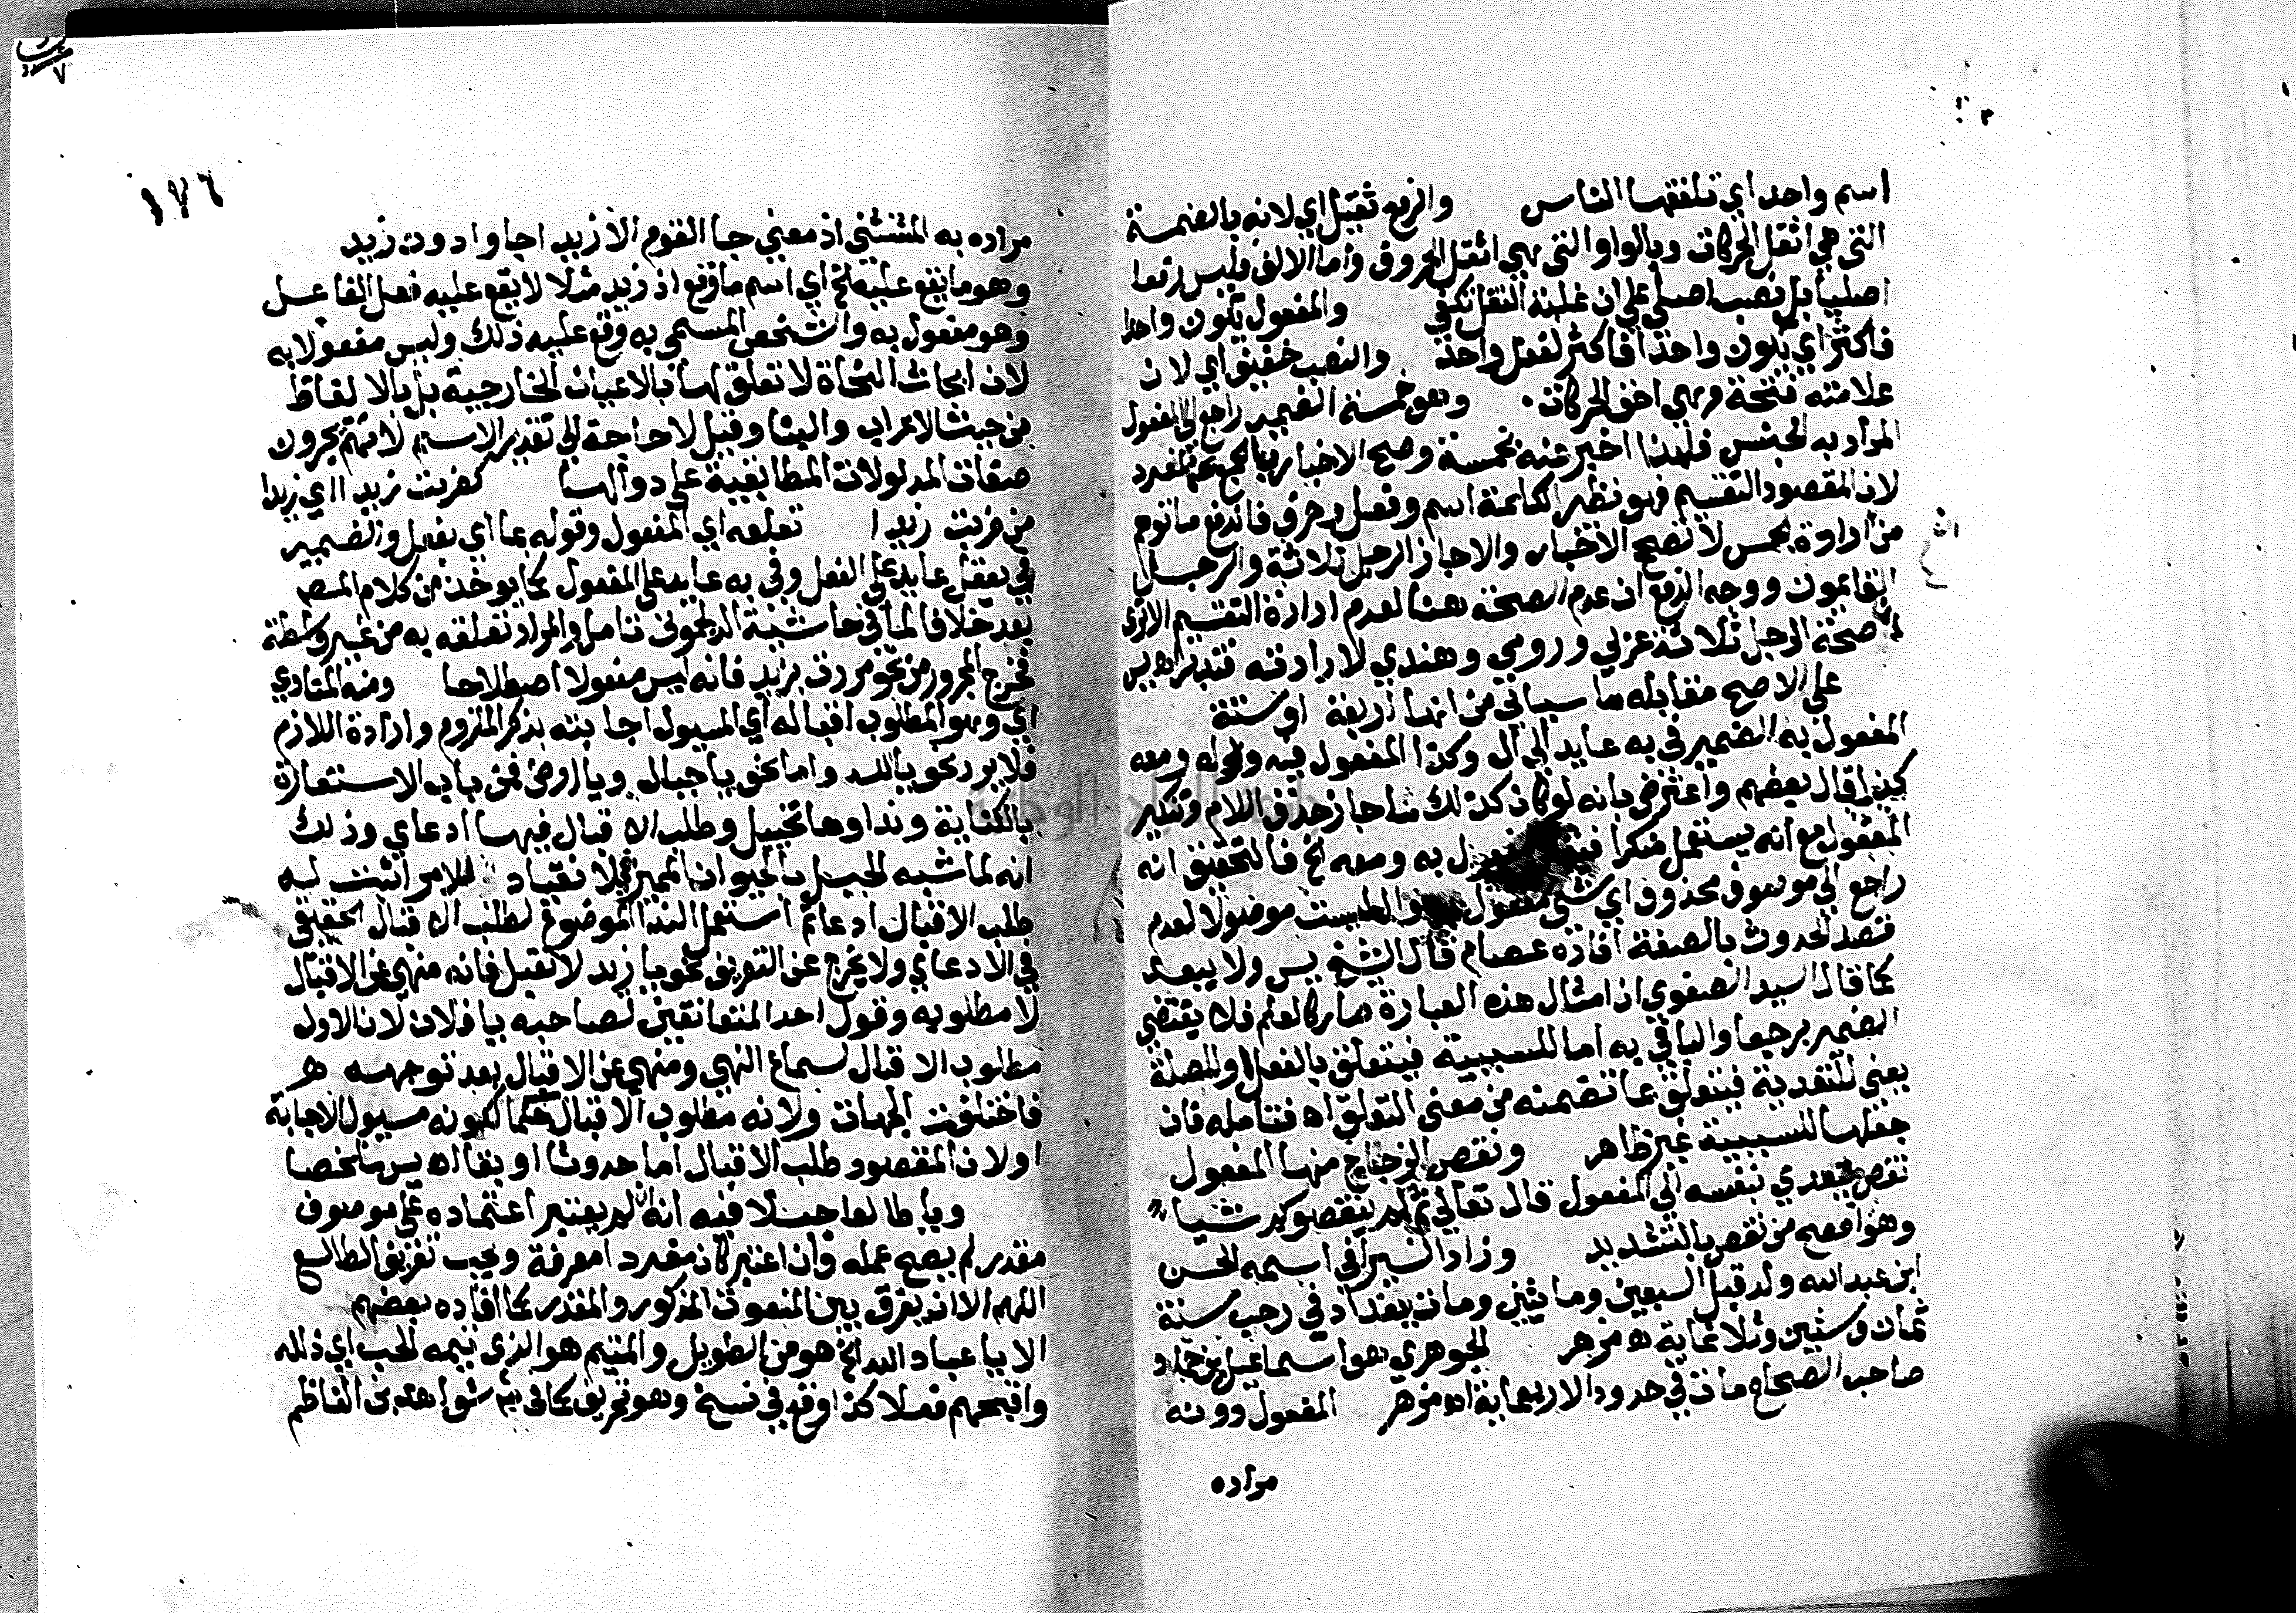 اسم واحد اي تلفقها الناس والرفع ثقيل اي لانه بالضمة
التي هي اثقل الحركات وبالواو التي هي اثقل الحروف واما الالف فليس رفعا
اصليا بل نصب اصلي على ان غلبة الثقل تكفي والمفعول يكون واحدا
فاكثر اي يكون واحدا فاكثر لفعل واحد والنصب خفيف اي لان
علامته فتحة وهي اخف الحركات وهو خمسة الضمير راجع الى المفعول
المراد به الجنس فلهذا اخبر عنه بخمسة وصح الاخبار بالجمع عن المفرد
لان المقصود التقسيم فهو نظير الكلمة اسم وفعل وحرف فاندفع ما توهم
من ارادة الجنس لا تصحح الاخبار والا جاز الرجل ثلاثة والرجل
القايمون ووجه الدفع ان عدم الصحة هنا لعدم ارادة التقسيم الا ترى
صحة الرجل ثلاثة عربي ورومي وهندي لارادته فتدبر اه يس
على الاصح مقابله ما سياتي من انها اربعة او ستة
المفعول به الضمير في به عايد الى ال وكذا المفعول فيه وله ومعه
كذا قال بعضهم واعترض بانه لو كان كذلك لما جاز حذف اللام وتنكير
المفعول مع انه يستعمل منكرا به ومعه الخ فالتحقيق انه
راجع الى موصوف محذوف اي شي مفعول وال ليست موصولا لعدم
قصد الحدوث بالصفة افاده عصام قال الشيخ يس ولا يبعد
كما قال السيد الصفوي ان امثال هذه العبارة صار كالعلم فلا يقتضي
الضمير مرجعا والبا في به اما للسببية فيتعلق بالفعل او للصلة
يعني للتعدية فيتعلق بما تضمنه من معنى التعلق اه فتامله فان
جعلها للسببية غير ظاهر ونقص الزجاج منها المفعول
نقص يتعدي بنفسه الى المفعول قال تعالى ثم لم ينقصوكم شيا
وهو افصح من نقص بالتشديد وزاد السيرافي اسمه الحسن
ابن عبد الله ولد قبل السبعين ومايتين ومات ببغداد في رجب سنة
ثمان وستين وثلاثماية اه مزهر الجوهري هو اسماعيل بن حماد
صاحب الصحاح مات في حدود الاربعماية اه مزهر المفعول دونه
مراده
١٧٦
مراده به المستثنى اذ معنى جا القوم الا زيدا جاوا دون زيد
وهو ما يقع عليه الخ اي اسم ما وقع اذ زيد مثلا لا يقع عليه فعل الفاعل
وهو مفعول به والشخص المسمى به وقع عليه ذلك وليس مفعولا به
لان ابحاث النحاة لا تعلق لها بالاعيان الخارجية بل بالالفاظ
من حيث الاعراب والبنا وقيل لا حاجة الى تقدير الاسم لانهم يجرون
صفات المدلولات المطابقية على دوالها كضربت زيدا اي زيدا
من ضربت زيدا تعلقه اي المفعول وقوله بما اي بفعل والضمير
في يعقل عايد على الفعل وفي به عايد على المفعول كما يوخذ من كلام المص
بعد خلافا لما في حاشية تامل والمراد تعلقه به من غير واسطة
فخرج المجرور من نحو مررت بزيد فانه ليس مفعولا اصطلاحا ومنه المنادي
اي وهو المطلوب اقباله اي المسيول اجابته بذكر الملزوم وارادة اللازم
فلا يرد نحو يا الله واما نحو يا جبال ويا ارض فمن باب الاستعارة
بالكناية ونداوها تخييل وطلب الاقبال فيها ادعاي وذلك
انه لما شبه الجبل بالحيوان المميز في الانقياد للامر اثبت له
طلب الاقبال ادعا ثم استعمل الندا الموضوع لطلب الاقبال الحقيقي
في الادعاي ولا يخرج عن التعريف نحو يا زيد لا تقبل فانه منهي عن الاقبال
لا مطلوبه وقول احد المتعانقين لصاحبه يا فلان لان الاول
مطلوب الاقبال لسماع النهي ومنهي عن الاقبال بعد توجهه
فاختلفت الجهات ولانه مطلوب الاقبال حكما لكونه مسيول الاجابة
او لان المقصود طلب الاقبال اما حدوثا او بقا اه يس ملخصا
ويا طالعا جبلا فيه انه ان لم يعتبر اعتماده على موصوف
مقدر لم يصح عمله وان اعتبر كان مفردا معرفة ويجب تعريف الطالع
اللهم الا ان يفرق بين المنعوت المذكور والمقدر كما افاده بعضهم
الا يا عباد الله الخ هو من الطويل والمتيم هو الذي تيمه الحب اي ذلله
واقبحهم فعلا كذا وقع في نسخ وهو تحريف كما في الناظم